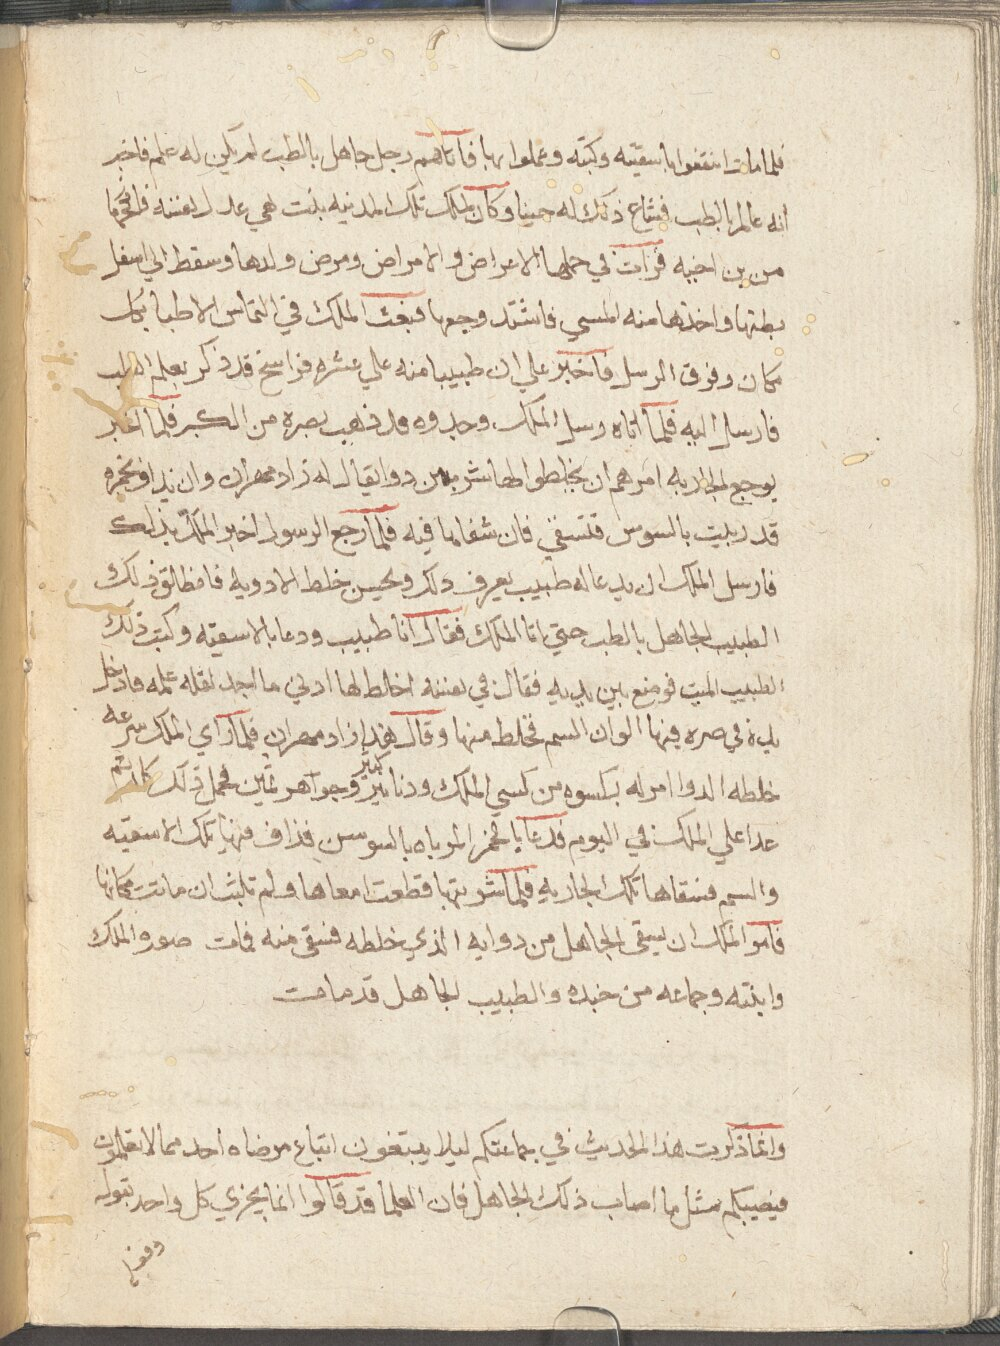 فلما مات انتفعوا باسقيته وكتبه وعملوا بها فاتاهم رجل جاهل بالطب لم يكن له علم فاخبر
انه عالم بالطب فشاع ذلك له حينا وكان لملك تلك المدينه بنت هي عدل نفسه فانكحها
من بن اخيه فرات في حملها الاعراض والامراض ومرض ولدها وسقط الي اسفل
بطنها واخذها منه المسي فاشتد وجعها فبعث الملك في التماس الاطبا بكل
مكان وفرق الرسل فاخبر علي ان طبيبا منه علي عشره فراسخ قد ذكر بعلم الطب
فارسل اليه فلما اتاه رسل الملك وجدوه قد ذهب بصره من الكبر فلما اخبر
بوجع الجاريه امرهم ان يخلطوا لها شربه من دوا يقال له زاد مهران وان يداف بخمره
قد ربيت بالسوس فتسقي فان شفاها فيه فلما رجع الرسول اخبر الملك بذلك
فارسل الملك ان يدعا له طبيب يعرف ذلك ويحسن خلط الادويه فانطلق ذلك
الطبيب الجاهل بالطب حتي اتا الملك فقال انا طبيب ودعا بالاسقيه وكتب ذلك
الطبيب الميت فوضع بين يديه فقال في نفسه اخلط لها ادني ما اجد لقله علمه فادخل
يده في صره فيها الوان السم فخلط منها وقال هذا زاد مهران فلما راي الملك سرعه
خلطه الدوا امر له بكسوه من كسي الملك ودنانير كثير وجواهر ثمين فحمل ذلك كله ثم
غدا علي الملك في اليوم فدعا بالخمر المرباه بالسوسن فذاف فيها تلك الاسقيه
والسم فسقاها تلك الجاريه فلما شربتها قطعت امعاها ولم تلبث ان ماتت مكانها
فامر الملك ان يسقي الجاهل من دوايه الذي خلطه فسقي منه فمات صوره الملك
وابنته وجماعه من جنده والطبيب الجاهل قد مات
وانما ذكرت هذا الحديث في جماعتكم ليلا يبتغون اتباع مرضاه احد مما لا تعلمون
فيصيبكم مثل ما اصاب ذلك الجاهل فان العلما قد قالوا انما يجزي كل واحد بقوله
وفعله